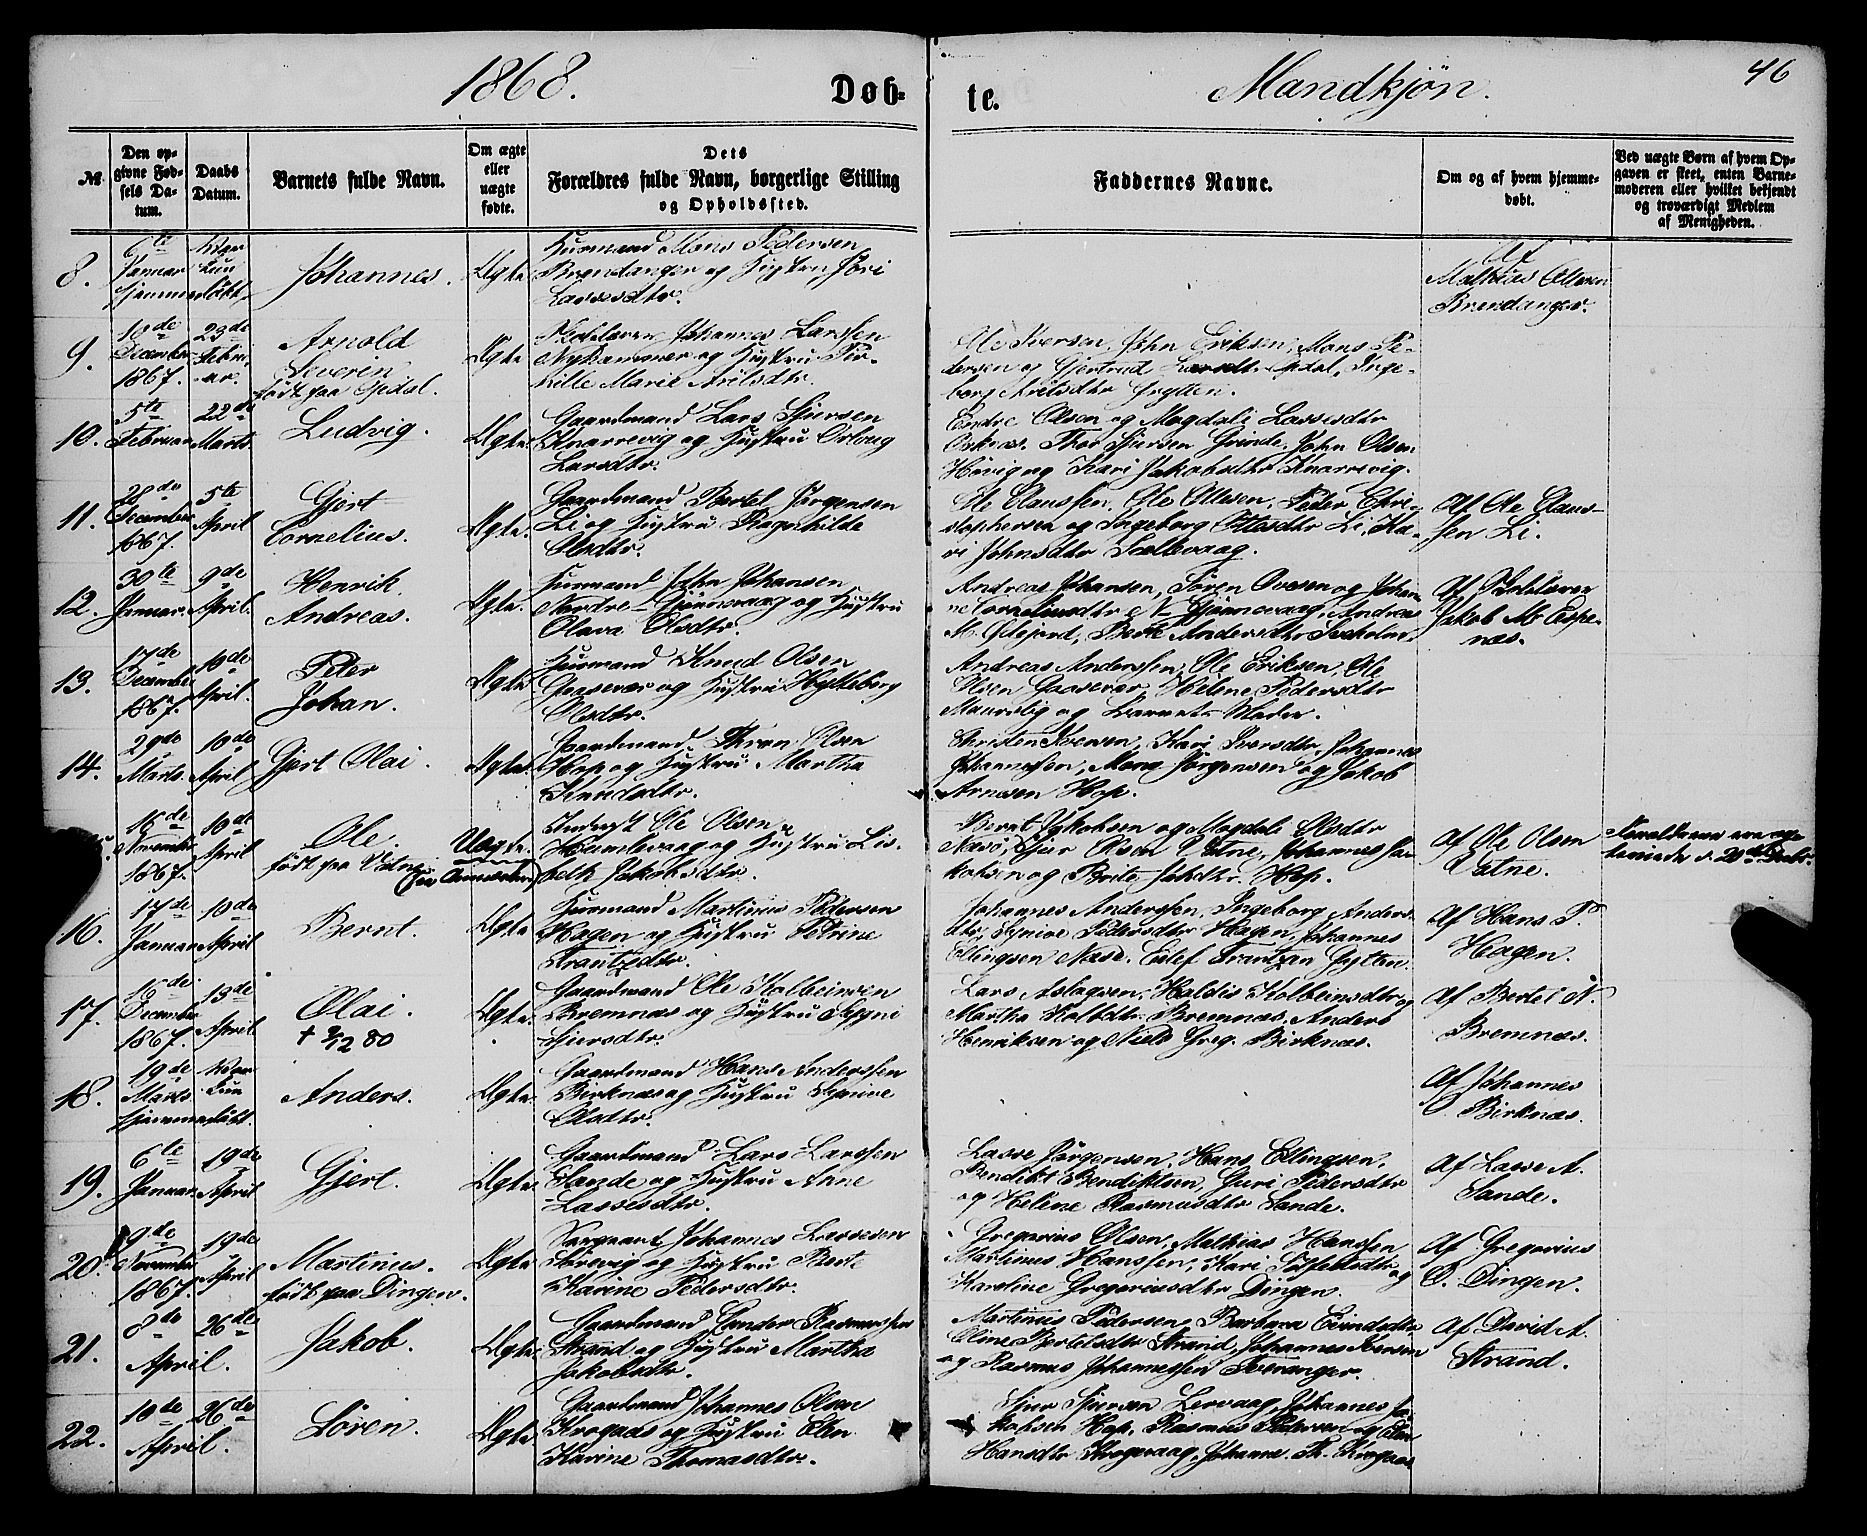 1868. Døb-
te. Mandkjøn. 46
№
Den op-
givne Fød-
sels Da-
tum.
Daabs
Datum.
Barnets fulde Navn.
Om ægte
eller
uægte
fødte.
Dets
Forældres fulde Navn, borgerlige Stilling
og Opholdssted.
Faddernes Navne.
Om og af hvem hjemme-
døbt.
Ved uægte Børn af hvem Op-
gaven er skeet, enten Barne-
moderen eller hvilket bekjendt
og troværdigt Medlem
af Menigheden.
8.
6te
Januar
hjemmedøbt
kun
Johannes.
Ægte
Huusmand Mons Pedersen
Brendanger og Hustru
Lassesdtr.
Af
Mathias Ellesen
Brendanger.
9.
December
1867.
23de
Februar
ar.
Arnold
Severin
født paa Opdal.
Ægte
Skolelærer Johannes Larssen
og Hustru Tor-
hille Marie Arilsdtr.
Ole Iversen, John Eriksen, Mons Pe-
dersen og Gjertrud Larsdtr. Opdal, Inge-
borg Arilsdtr Grytten.
10.
5te
Februar
22de
Marts
Ludvig.
Ægte
Gaardmand Lars Sjursen
Knarrevig og Hustru Ortoug
Larsdtr.
Endre Olsen og Magdali Lassesdtr
Thor Sjursen Grinde, John Olsen
Hävig og Kari Jakobsdtr Knarrevig.
11.
28de
December
1867.
5te
April
Gjert
Cornelius.
Ægte.
Gaardmand Bertel Jørgensen
Li og Hustru Ragnhilde
Olsdtr.
Ole Claussen, Ole Ellesen, Peder Chri-
stophersen og Ingeborg Ottosdtr Li, Ka-
ri Johnsdtr Sællevaag.
Af Ole Claus-
sen Li.
12.
30te
Januar.
9de
April.
Henrik
Andreas.
Ægte.
Huusmand John Johansen
Nordre-Gjønnevaag og Hustru
Olava Olsdtr.
Andreas Johansen, Søren Ovesen og Johan-
ne Corneliusdtr N. Gjønnevaag, Andreas
M. Ødejord, Berte Andersdtr Sveholm.
Af Skolelærer
Jakob M. Espe-
næs.
13.
17de
December
1867.
10de
April.
Peter
Johan.
Ægte
Huusmand Knud Olsen
Gaasevær og Hustru Hykkeborg
Olsdtr.
Andreas Anderssen, Ole Eriksen, Ole
Olsen Gaasevær, Helene Pedersdtr
Maurslig og Barnets Moder.
14.
29de
Marts
10de
April
Gjert Olai.
Ægte
Gaardmand Thron Olsen
Hop og Hustru Martha
Knudsdtr.
Christen Iversen, Kari Iversdtr, Johannes
Johannessen, Mons Jørgensen og Jakob
Arnesen Hop.
16de
November
1867.
10de
April
Ole.
født paa Vatne
Uægte.
Ole Olsen
Humlevaag og Hustru Lis-
beth Jakobsdtr.
Bernt Jakobsen og Magdali Olsdtr
Næsø, Sjur Olsen Vatne, Johannes Ja-
kobsen og Brite Jakdtr. Hop.
Af Ole Olsen
Vatne.
16.
17de
Januar
10de
April
Bernt.
Ægte
Huusmand Martinus Pedersen
Hagen og Hustru Petrine
Frantzdtr.
Johannes Anderssen, Ingeborg Anders-
dtr, Synive Pedersdtr Hagen, Johannes
Ellingsen Næsø, Eilef Frantzen Grytten.
Af Hans P.
Hagen.
17.
16de
December
1867.
13de
April
Olai.
+ 2/12 80
Ægte
Gaardmand Ole Kolbeinsen
Bremnæs og Hustru Sygni
Sjursdtr.
Lars Aslagsen, Haldis Kolbeinsdtr og
Martha Kolbdtr. Bremnæs, Anders
Henriksen og Niels Greg. Birknæs.
Af Bertel N.
Bremnæs.
18.
19de
Marts
hjemmedøbt.
kun
Anders.
Ægte
Gaardmand Hans Anderssen
Birknæs og Hustru Synive
Olsdtr.
Af Johannes
O. Birknæs.
19.
6te
Januar
19de
April
Gjert.
Ægte
Gaardmand Lars Larssen
Sande og Hustru Anne
Lassesdtr.
Lasse Jørgensen, Hans Ellingsen,
Bendikt Bendiktsen, Guri Pedersdtr
og Helene Rasmusdtr Sande.
Af Lasse A.
Sande.
20.
9de
November
1867.
19de
April
Martinus.
født paa Dingen.
Ægte
Johannes Lassesen
og Hustru Berte
Karine Pedersdtr.
Gregorius Olsen, Mathias Hanssen,
Martinus Hanssen, Kari Tolfsdtr og
Karoline Gregoriusdtr Dingen.
Af Gregorius
O. Dingen.
21.
8de
April.
26de
Jakob.
Ægte
Gaardmand Sander Rasmussen
Strand og Hustru Martha
Jakobsdtr.
Martinus Pedersen, Barbara Eivindsdtr,
Oline Bertelsdtr Strand, Johannes Iversen
og Rasmus Johannessen Tveranger.
Af David A.
Strand.
22.
10de
April.
26de
Søren.
Ægte
Gaardmand Johannes Olsen
Krogaas og Hustru Elen
Karine Thomasdtr.
Sjur Sjursen Lervaag, Johannes Ja-
kobsen Hop, Rasmus Pedersen og Elen
Hansdtr Krogevaag, Johanne Th. Krogaas